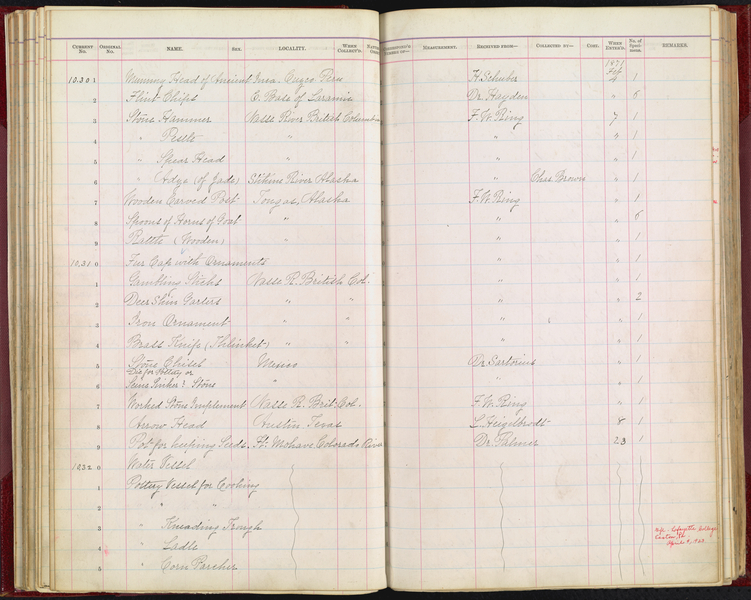 CURRENT No. ORIGINAL No. NAME. SEX. LOCALITY. WHEN COLLECT'D. MEASUREMENT. RECEIVED FROM— COLLECTED BY— COST. WHEN ENTER'D. No. of Specimens. REMARKS.
1871
Feb
1030 1 Mummy Head of Ancient Inca. Cuzco Peru 4 1
2 Flint Chips E. Base of Laramie Dr. Hayden " 6
3 Stone Hammer Nasse River British Columbia F. W. Ring 7 1
4 " Pestle " " " 1
5 " Spear Head " " " 1
6 " Adze (of Jade) Stikine River Alaska Chas Brown " 1
7 Wooden Carved Post Tongas, Alaska F. W. Ring " 1
8 Spoons of Horns of Goat " " " 6
9 Rattle (Wooden) " " " 1
1031 0 Fur Cap with Ornaments " " 1
1 Gambling Sticks Nasse R. British Col. " " 1
2 Deer Skin Garters " " " " 2
3 Iron Ornament " " " " 1
4 Brass Knife (Thlinket) " " " " 1
5 Stone Chisel Mexico Dr. Sartorius " 1
6 Seine Sinker? Stone " " " 1
7 Worked Stone Implement Nasse R. Brit. Col. F. W. Ring " 1
8 Arrow Head Austin Texas L. Heiglbrodt 8 1
9 Pot for keeping Seeds. Ft. Mohave Colorado River Dr. Palmer 23 1
1032 0 Water Vessel
1 Pottery Vessel for Cooking
2 " "
3 " Kneading Trough
Lafayette College
Easton, Pa.
4 " Ladle
5 " Corn Parcher